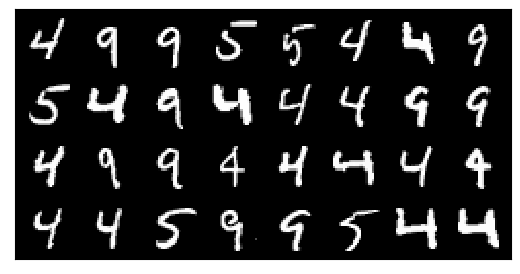 4 9 9 5 5 4 4 9
5 4 9 4 4 4 9 9
4 9 9 4 4 4 4 4
4 4 5 9 9 5 4 4